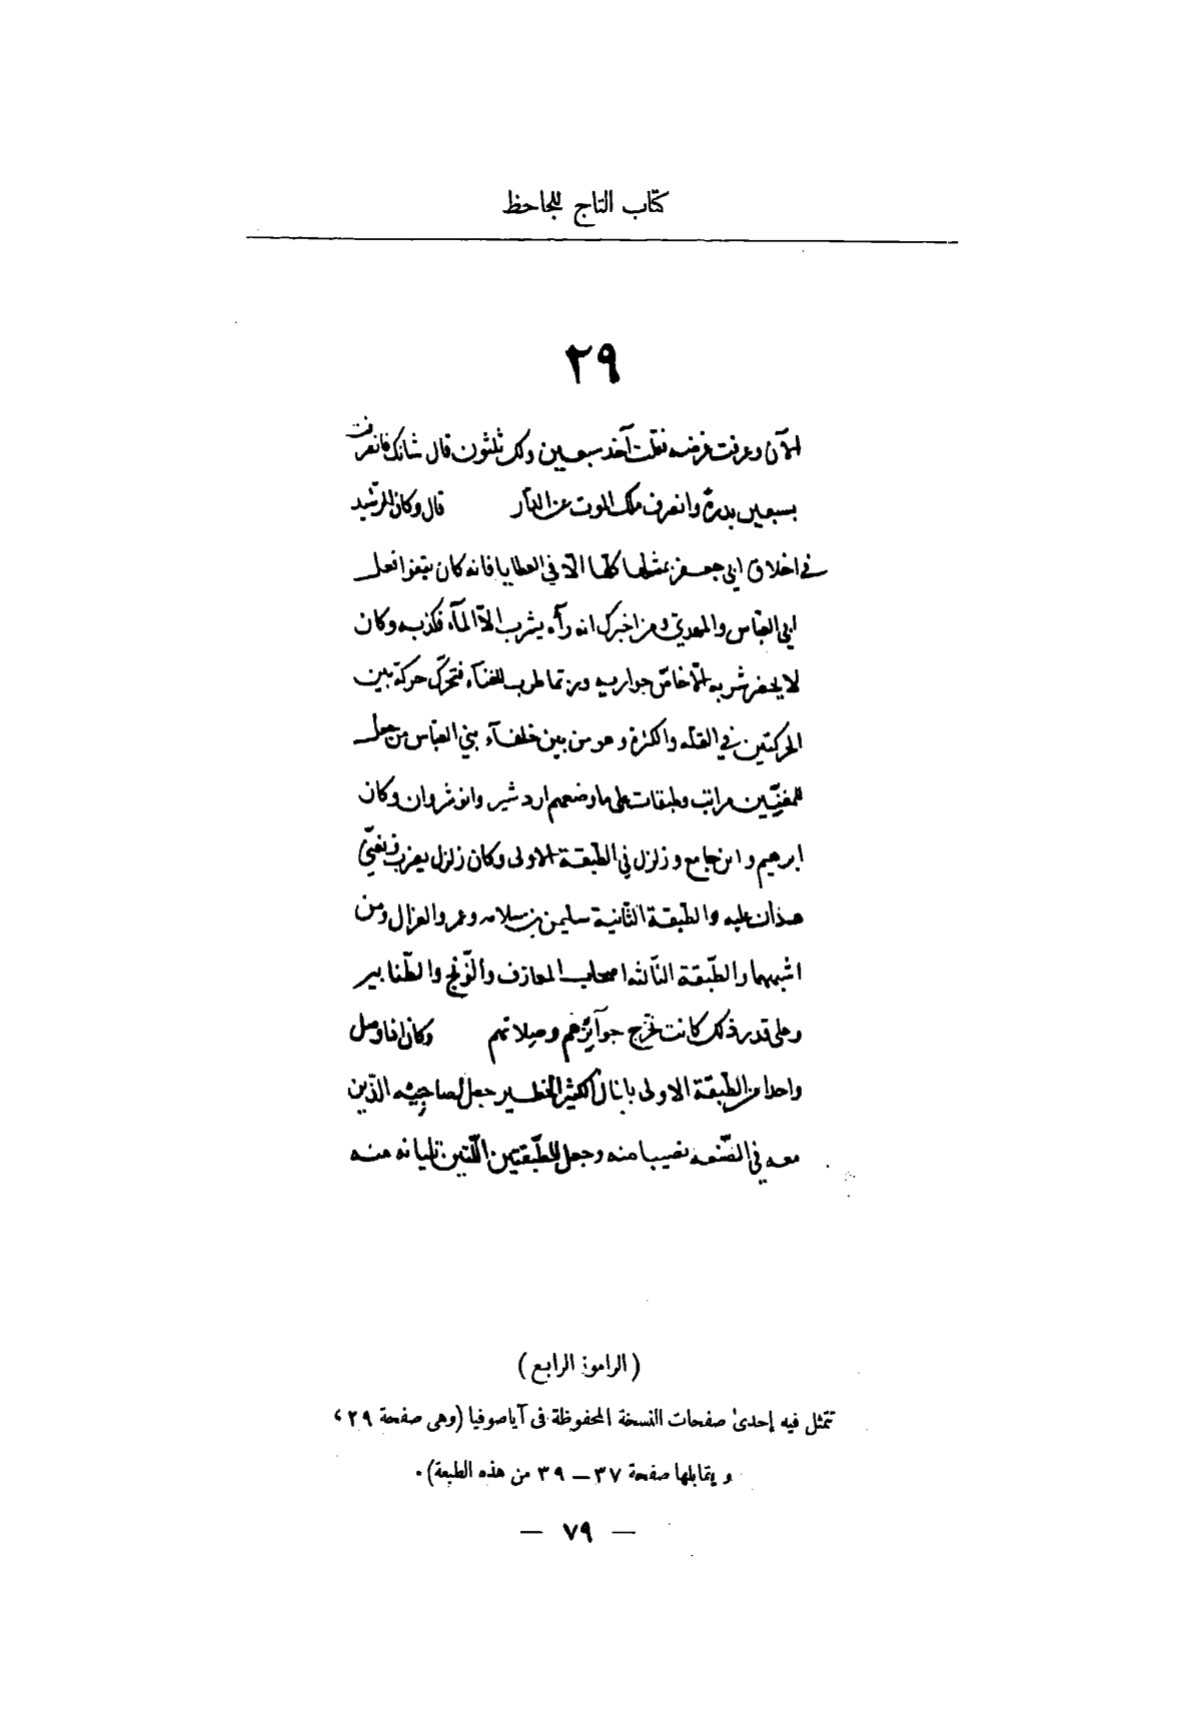 كتاب التاج للجاحظ
٢٩
الآن وعرفت غرضه فقلت آخذ سبعين ولك ثلثون قال شانك فانصرفت
بسبعين بدرة وانصرف ملك الموت عن الدار قال وكان الرشيد
في اخلاق ابي جعفر يمتثلها كلها الا في العطايا فانه كان يقفوا فعل
ابي العباس والمهدي ومن اخبرك انه رآه يشرب الا المآء فكذبه وكان
لا يحضر شربه الا خاص جواريه وربما طرب للغنآء فتحرك حركة بين
الحركتين في القلة والكثرة وهو من بين خلفآء بني العباس من جعل
للمغنيين مراتب وطبقات على ما وضعهم اردشير وانوشروان وكان
ابرهيم وابن جامع وزلزل في الطبقة الاولى وكان زلزل يضرب ويغني
هذان عليه والطبقة الثانية سليمن بن سلامه وعمرو الغزال ومن
اشبههما والطبقة الثالثه اصحاب المعازف والونج والطنابير
وعلى قدر ذلك كانت تخرج جوآئزهم وصلاتهم وكان اذا وصل
واحدا من الطبقة الاولى بالمال الكثير الخطير جعل لصاحبيه الذين
معه في الصنعه نصيبا منه وجعل للطبقتين اللتين تليانه منه
(الراموز الرابع)
تتمثل فيه إحدىٰ صفحات النسخة المحفوظة فى آياصوفيا (وهى صفحة ٢٩،
ويقابلها صفحة ٣٧ – ٣٩ من هذه الطبعة).
— ٧٩ —